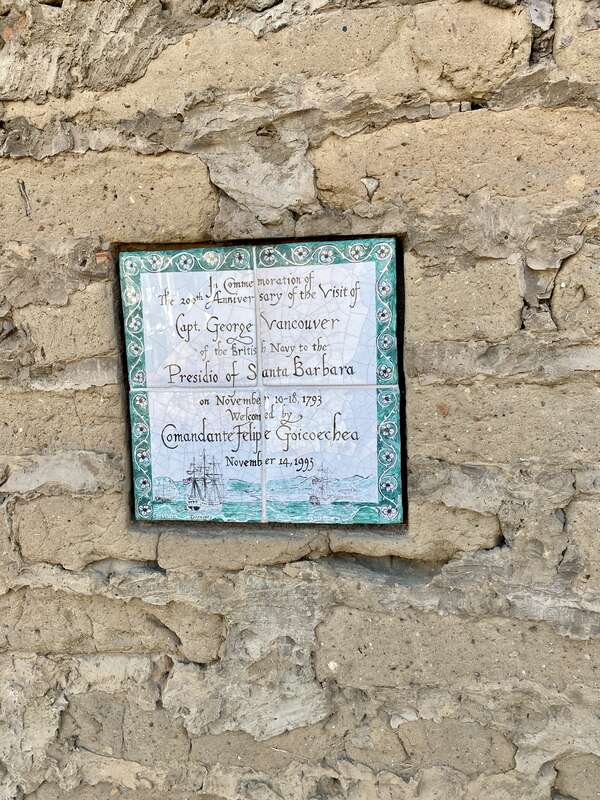 In Commemoration of
The 200th Anniversary of the Visit of
Capt. George Vancouver
of the British Navy to the
Presidio of Santa Barbara
on November 10-18, 1793
Welcomed by
Comandante Felipe Goicoechea
November 14, 1993